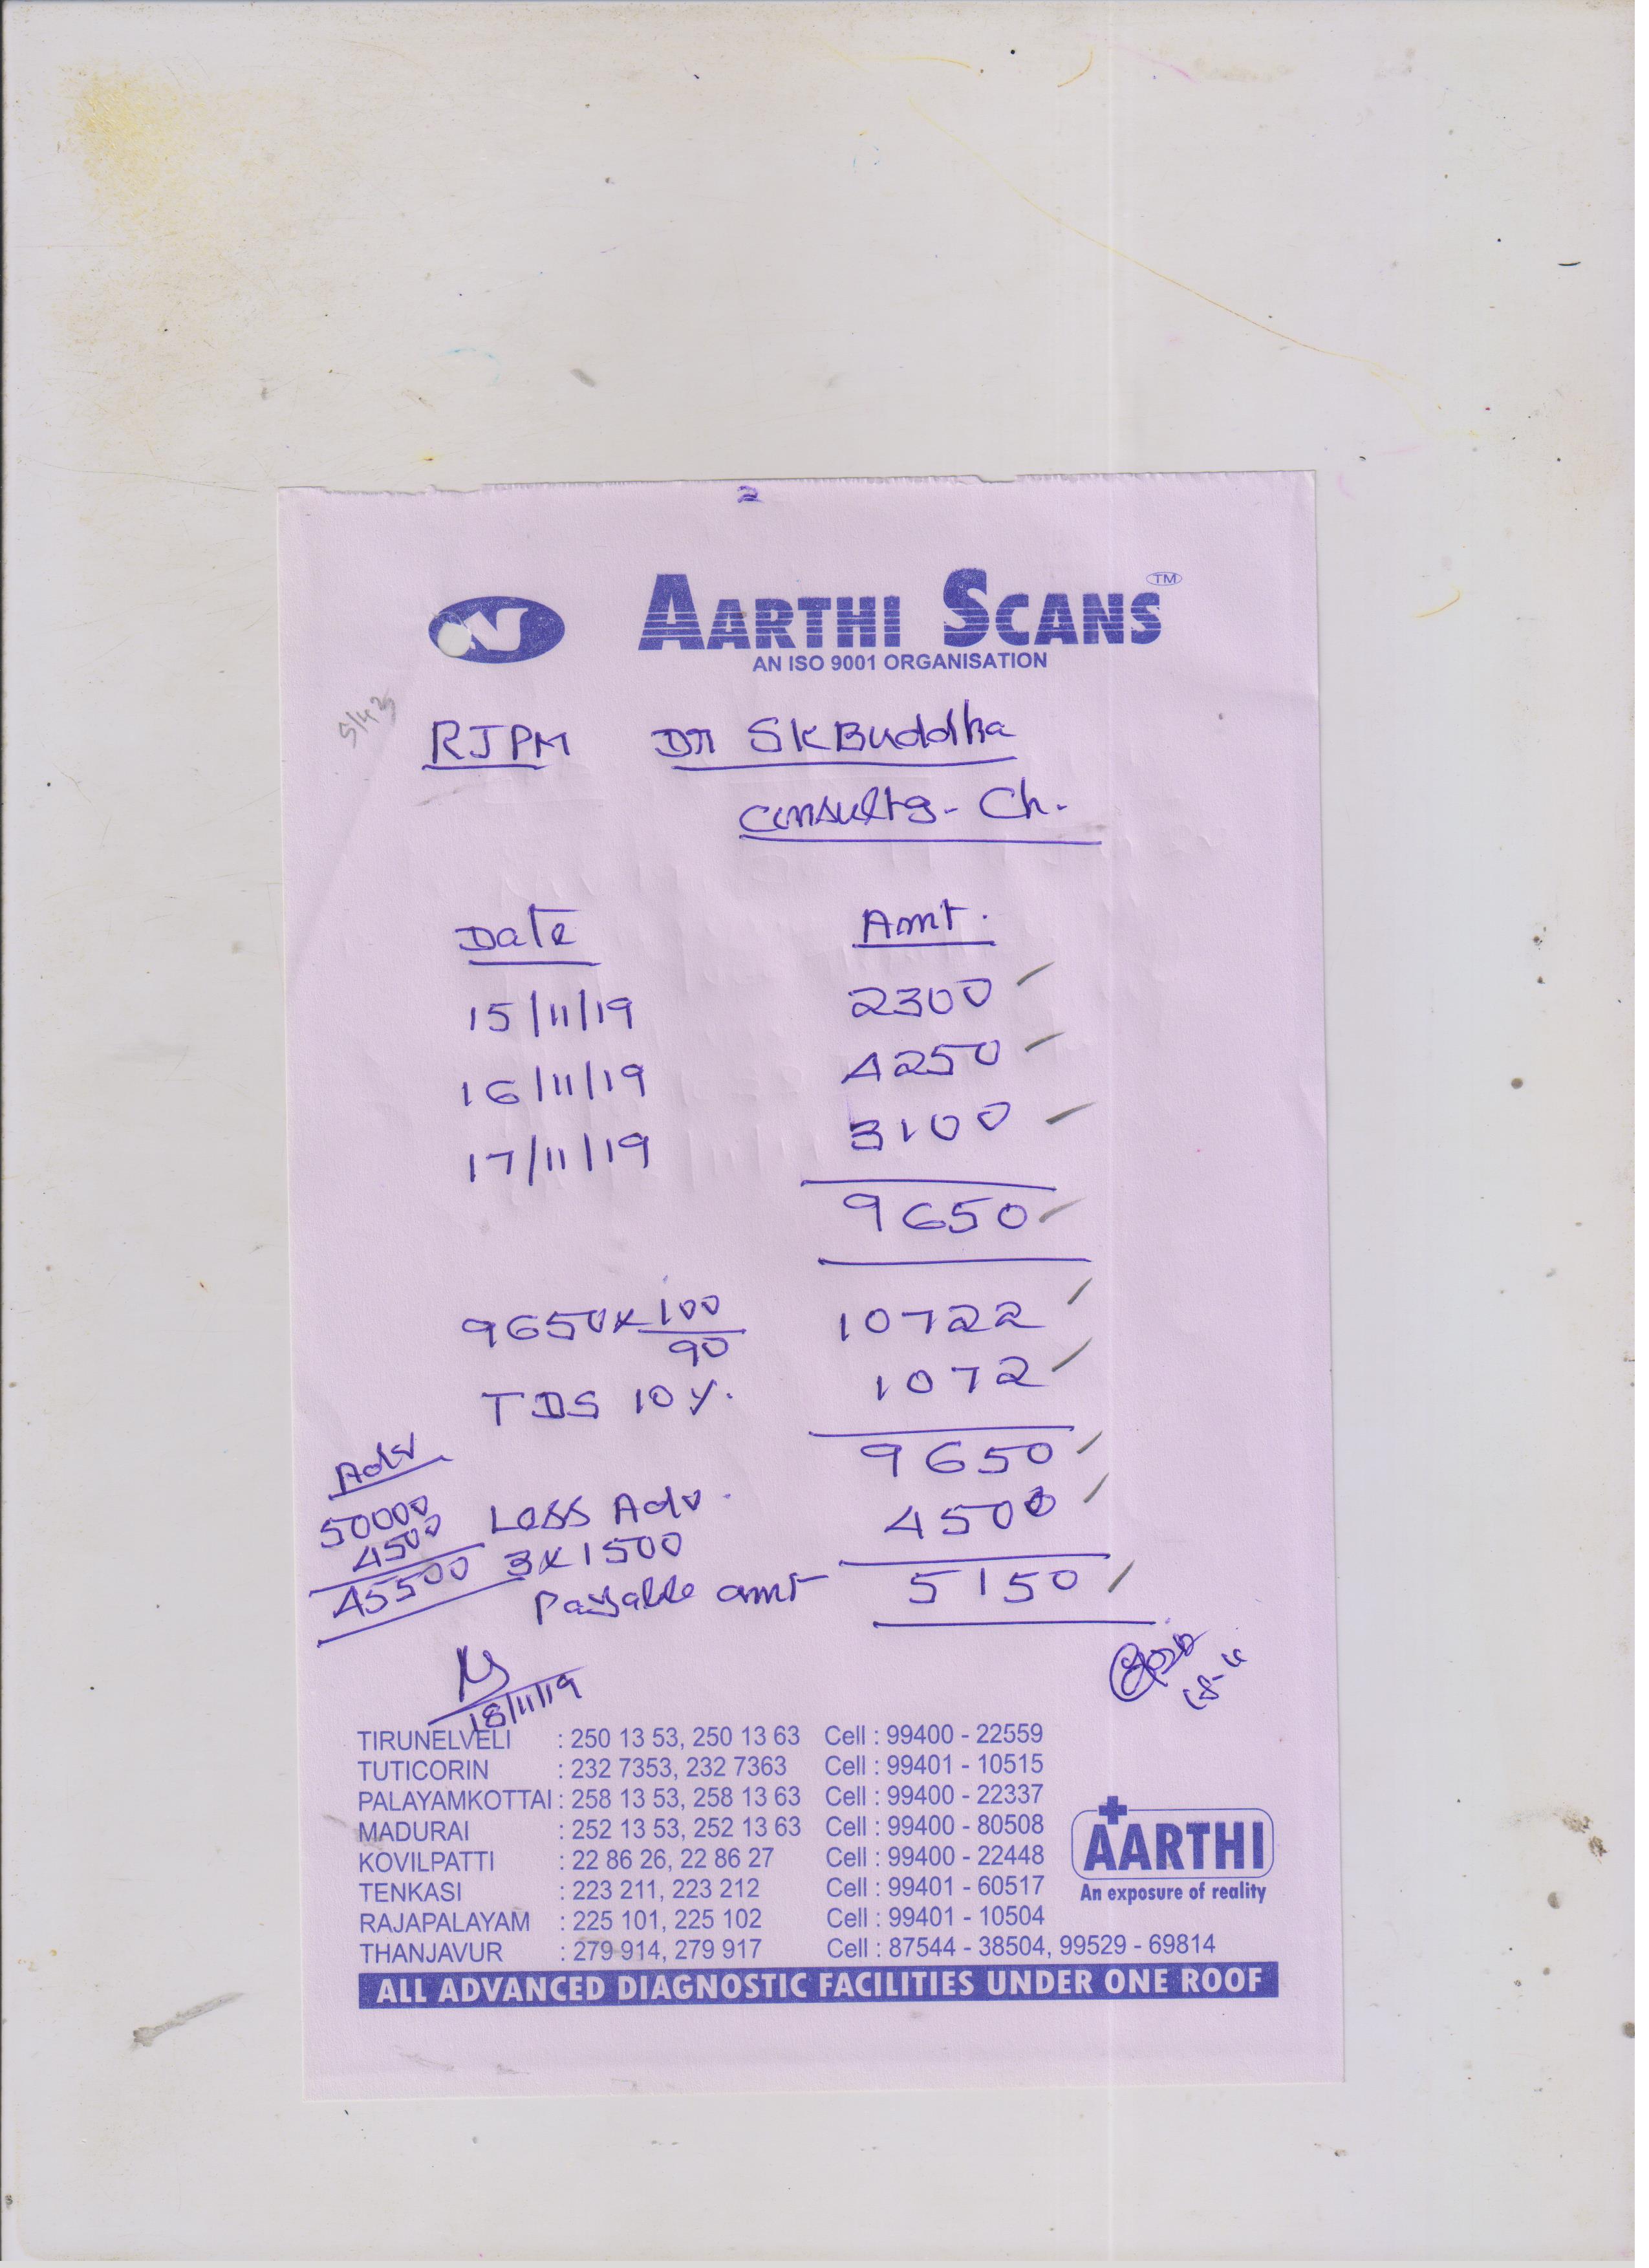 2
AARTHI SCANS TM
AN ISO 9001 ORGANISATION
RJPM Dr SK Buddha
Consultg - Ch.
Date Amt.
15/11/19 2300
16/11/19 4250
17/11/19 3100
9650
9650 x 100/90 10722
TDS 10%. 1072
9650
Adv
50000
4500
45500
Less Adv. 4500
3x1500
Payable amt 5150
18/11/19
18-11
TIRUNELVELI : 250 13 53, 250 13 63 Cell : 99400 - 22559
TUTICORIN : 232 7353, 232 7363 Cell : 99401 - 10515
PALAYAMKOTTAI : 258 13 53, 258 13 63 Cell : 99400 - 22337
MADURAI : 252 13 53, 252 13 63 Cell : 99400 - 80508
KOVILPATTI : 22 86 26, 22 86 27 Cell : 99400 - 22448
TENKASI : 223 211, 223 212 Cell : 99401 - 60517
RAJAPALAYAM : 225 101, 225 102 Cell : 99401 - 10504
THANJAVUR : 279 914, 279 917 Cell : 87544 - 38504, 99529 - 69814
AARTHI
An exposure of reality
ALL ADVANCED DIAGNOSTIC FACILITIES UNDER ONE ROOF